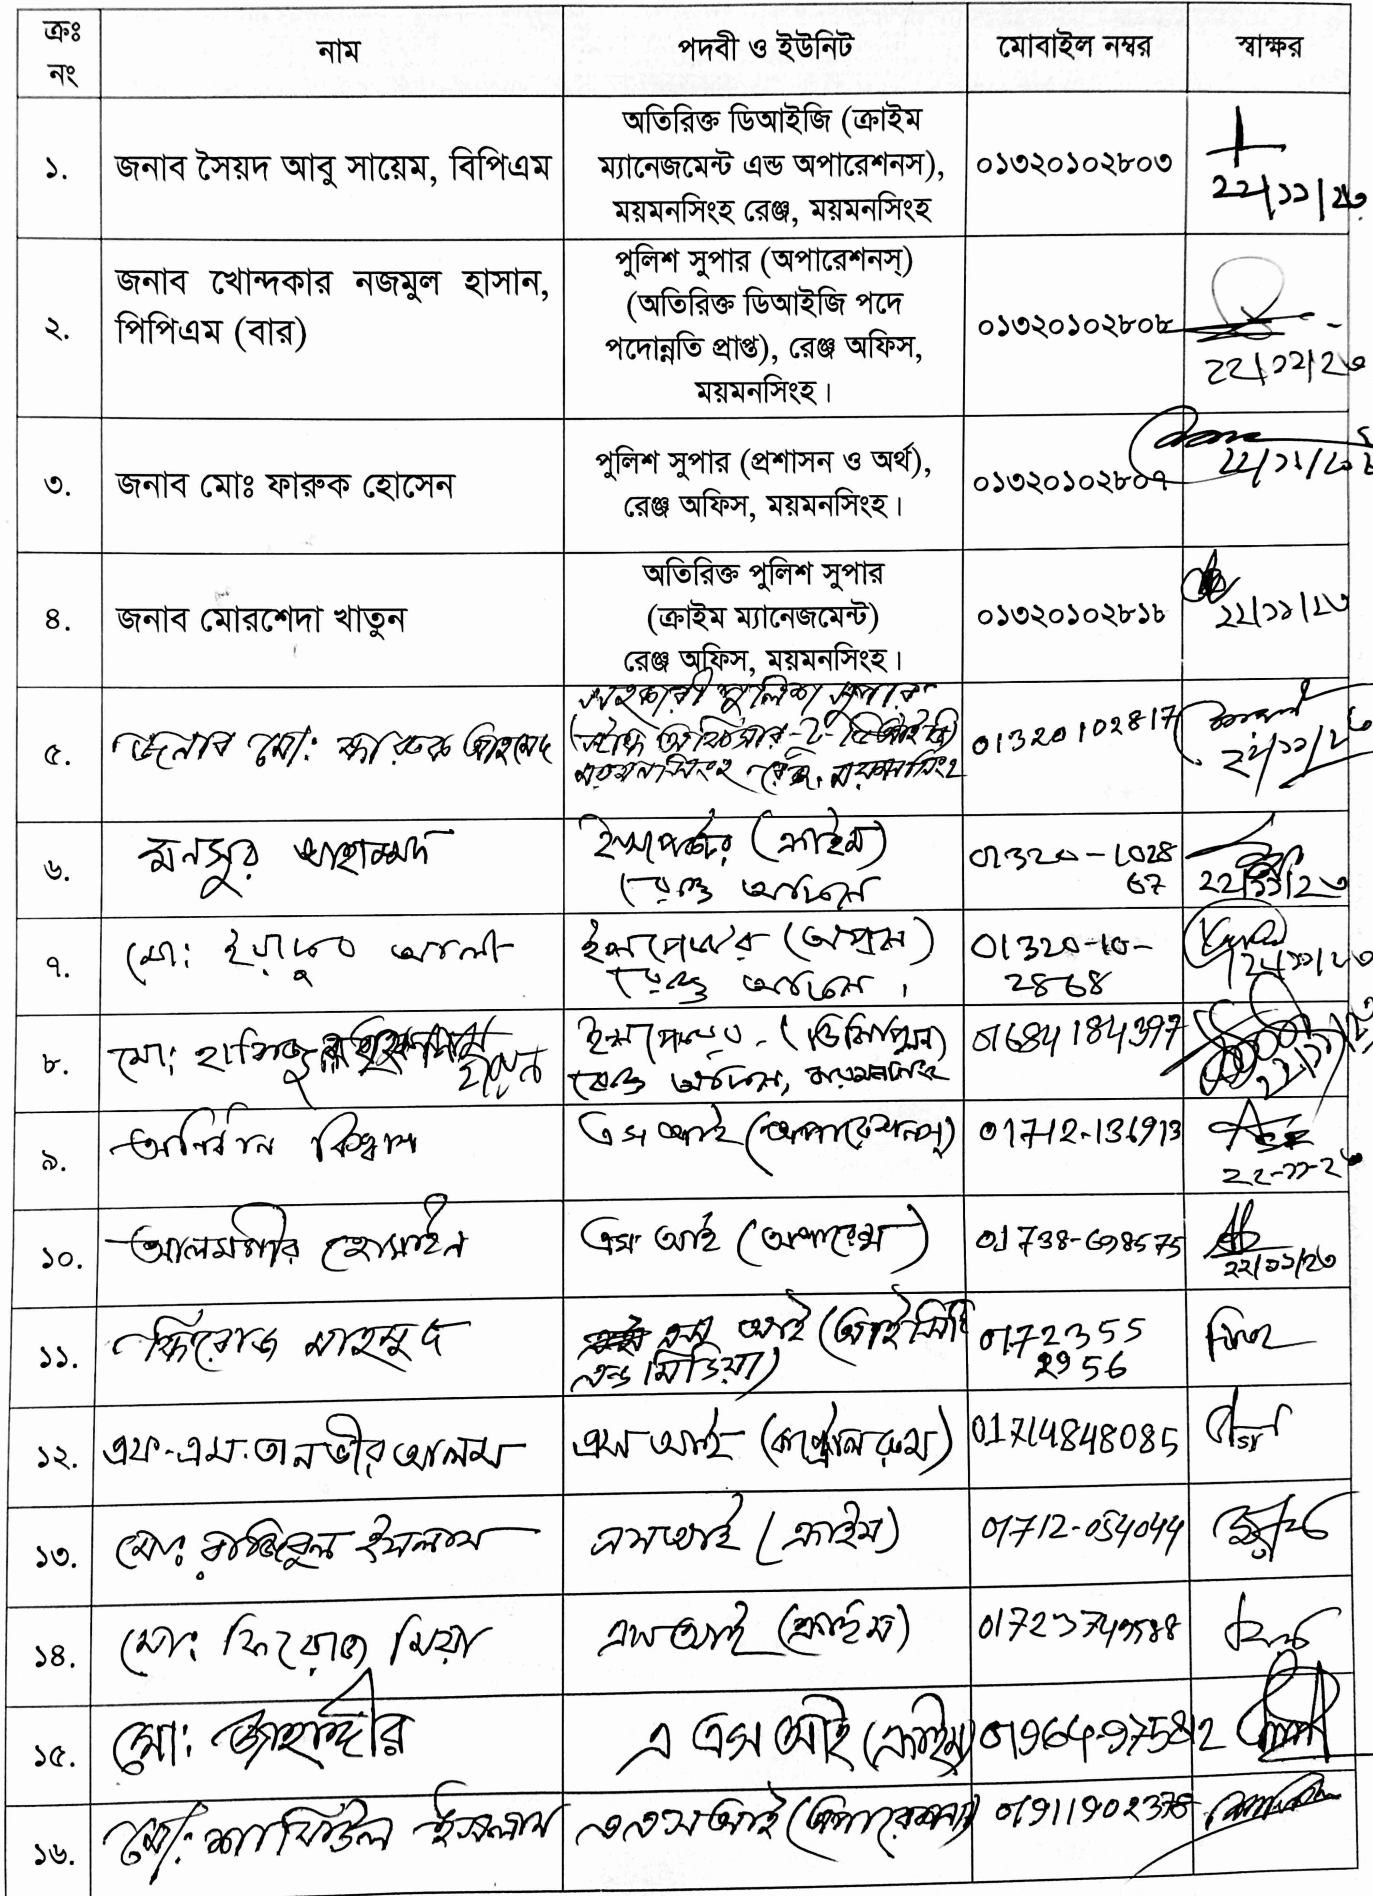 ক্রঃ
নং
নাম
পদবী ও ইউনিট
মোবাইল নম্বর
স্বাক্ষর
১.
জনাব সৈয়দ আবু সায়েম, বিপিএম
অতিরিক্ত ডিআইজি (ক্রাইম
ম্যানেজমেন্ট এন্ড অপারেশনস),
ময়মনসিংহ রেঞ্জ, ময়মনসিংহ
০১৩২০১০২৮০৩
২২/১১/২৩
২.
জনাব খোন্দকার নজমুল হাসান,
পিপিএম (বার)
পুলিশ সুপার (অপারেশনস্)
(অতিরিক্ত ডিআইজি পদে
পদোন্নতি প্রাপ্ত), রেঞ্জ অফিস,
ময়মনসিংহ।
০১৩২০১০২৮০৮
২২/১১/২৩
৩.
জনাব মোঃ ফারুক হোসেন
পুলিশ সুপার (প্রশাসন ও অর্থ),
রেঞ্জ অফিস, ময়মনসিংহ।
০১৩২০১০২৮০৭
৪.
জনাব মোরশেদা খাতুন
অতিরিক্ত পুলিশ সুপার
(ক্রাইম ম্যানেজমেন্ট)
রেঞ্জ অফিস, ময়মনসিংহ।
০১৩২০১০২৮১৮
২২/১১/২৩
৫.
জনাব মো: ফারুক আহমেদ
সহকারী পুলিশ সুপার
(স্টাফ অফিসার-টু-ডিআইজি)
ময়মনসিংহ রেঞ্জ, ময়মনসিংহ
01320102817
২২/১১/২৩
৬.
মনসুর আহাম্মদ
ইন্সপেক্টর (ক্রাইম)
রেঞ্জ অফিস
01320-1028
67
২২/১১/২৩
৭.
মো: ইয়াকুব আলী
ইন্সপেক্টর (অপস)
রেঞ্জ অফিস।
01320-10-
2868
২২/১১/২৩
৮.
মো:
ইন্সপেক্টর (ডিসিপ্লিন)
রেঞ্জ অফিস, ময়মনসিংহ
01684184397
৯.
অনির্বান বিশ্বাস
এস আই (অপারেশনস্)
01712-136913
২২-১১-২৩
১০.
আলমগীর হোসাইন
এস আই (অপারেন্স)
01738-698575
২২/১১/২৩
১১.
ফিরোজ মাহমুদ
এস আই (আইসিটি
এন্ড মিডিয়া)
0172355
2956
১২.
এফ.এম.তানভীর আলম
এস আই (কন্ট্রোল রুম)
01714848085
১৩.
মোঃ রাজিবুল ইসলাম
এসআই (ক্রাইম)
01712-054044
১৪.
মো: ফিরোজ মিয়া
এস আই (ক্রাইম)
১৫.
মো: জাহাঙ্গীর
এ এস আই (ক্রাইম)
১৬.
মো: শফিউল ইসলাম
এ এস আই (অপারেশনস)